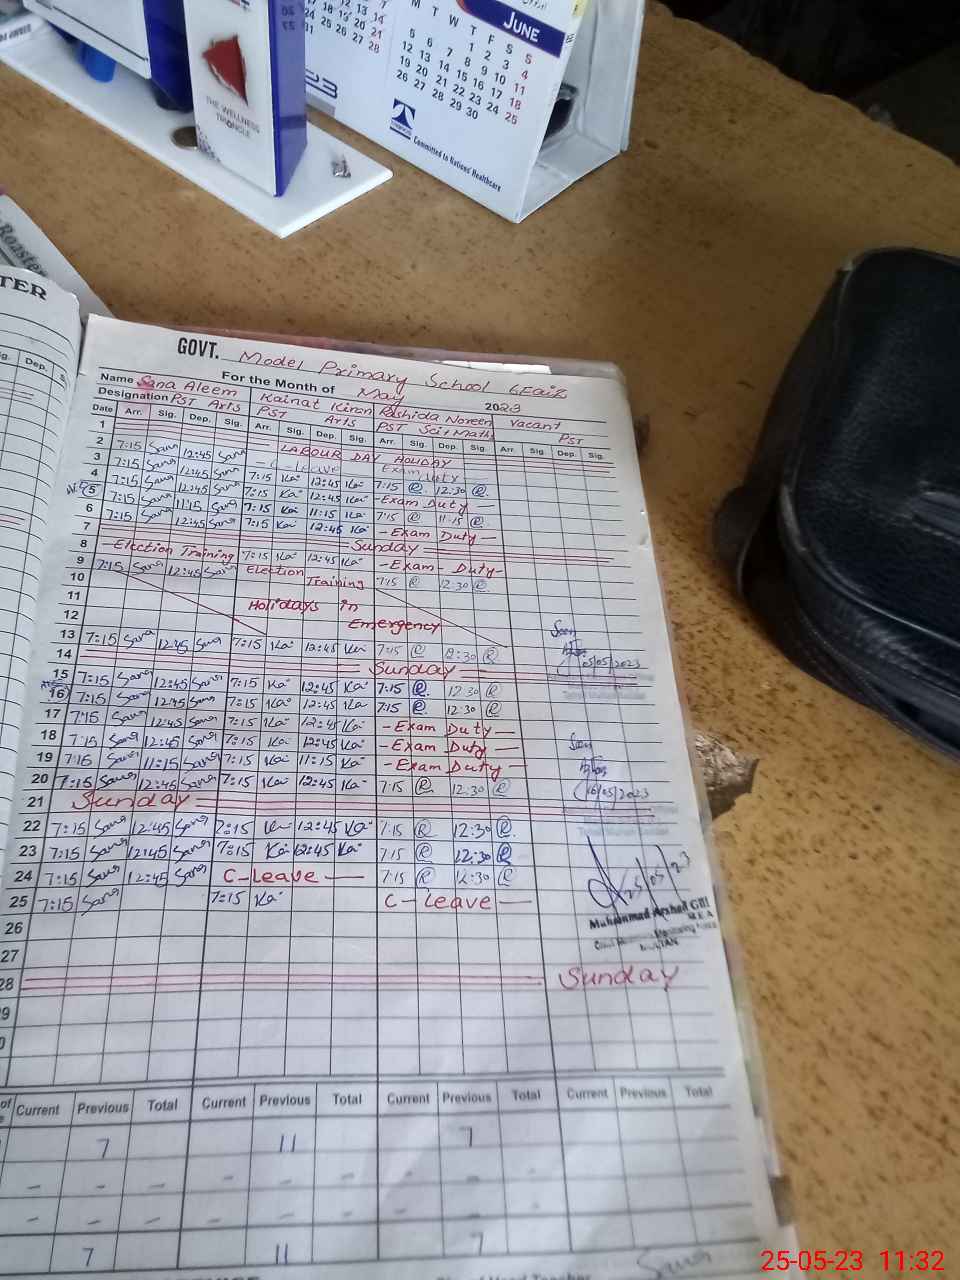 JUNE
M T W T F S S
1 2 3 4
5 6 7 8 9 10 11
12 13 14 15 16 17 18
19 20 21 22 23 24 25
26 27 28 29 30
Committed to Nations' Healthcare
THE WELLNESS
TRIANGLE
Roaster
TER
GOVT. Model Primary School
For the Month of May 2023
Name Sana Aleem Kainat Kiran Rashida Noreen Vacant
Designation PST Arts PST Arts PST Sci+Math PST
Date Arr. Sig. Dep. Sig. Arr. Sig. Dep. Sig. Arr. Sig. Dep. Sig. Arr. Sig. Dep. Sig.
1 LABOUR DAY HOLIDAY
2 7:15 Sana 12:45 Sana C-Leave Exam Duty
3 7:15 Sana 12:45 Sana 7:15 Ka 12:45 Ka 7:15 R 12:30 R
4 7:15 Sana 12:45 Sana 7:15 Ka 12:45 Ka -Exam Duty-
5 7:15 Sana 11:15 Sana 7:15 Ka 11:15 Ka 7:15 R 11:15 R
6 7:15 Sana 12:45 Sana 7:15 Ka 12:45 Ka -Exam Duty-
7 Sunday
8 -Election Training 7:15 Ka 12:45 Ka -Exam-Duty-
9 7:15 Sana 12:45 Sana Election Training 7:15 R 12:30 R
10
11 Holidays in
12 Emergency
13 7:15 Sana 12:45 Sana 7:15 Ka 12:45 Ka 7:15 R 12:30 R
14 Sunday
15 7:15 Sana 12:45 Sana 7:15 Ka 12:45 Ka 7:15 R 12:30 R
16 7:15 Sana 12:45 Sana 7:15 Ka 12:45 Ka 7:15 R 12:30 R
17 7:15 Sana 12:45 Sana 7:15 Ka 12:45 Ka -Exam Duty-
18 7:15 Sana 12:45 Sana 7:15 Ka 12:45 Ka -Exam Duty-
19 7:15 Sana 11:15 Sana 7:15 Ka 11:15 Ka -Exam Duty-
20 7:15 Sana 12:45 Sana 7:15 Ka 12:45 Ka 7:15 R 12:30 R
21 Sunday
22 7:15 Sana 12:45 Sana 7:15 Ka 12:45 Ka 7:15 R 12:30 R
23 7:15 Sana 12:45 Sana 7:15 Ka 12:45 Ka 7:15 R 12:30 R
24 7:15 Sana 12:45 Sana C-Leave 7:15 R 12:30 R
25 7:15 Sana 7:15 Ka C-Leave
26
27
28 Sunday
Seen
05/05/2023
Seen
16/05/2023
25/05/23
Muhammad Arshad Gill
M.E.A
Current Previous Total Current Previous Total Current Previous Total Current Previous Total
7 11 7
7 11 7
Sana
25-05-23 11:32